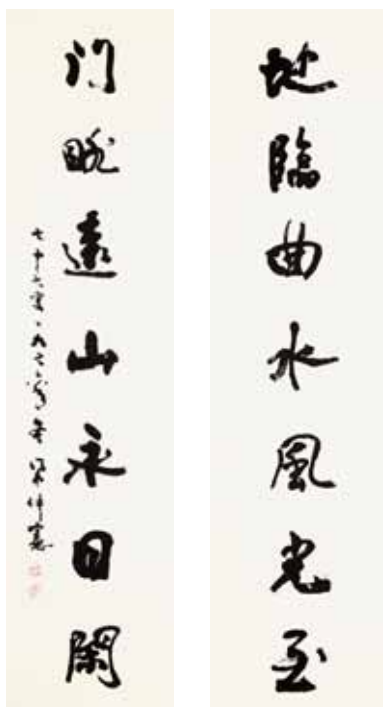 地臨曲水風光至
门眺遠山永日閑
七十六叟一九七六年冬